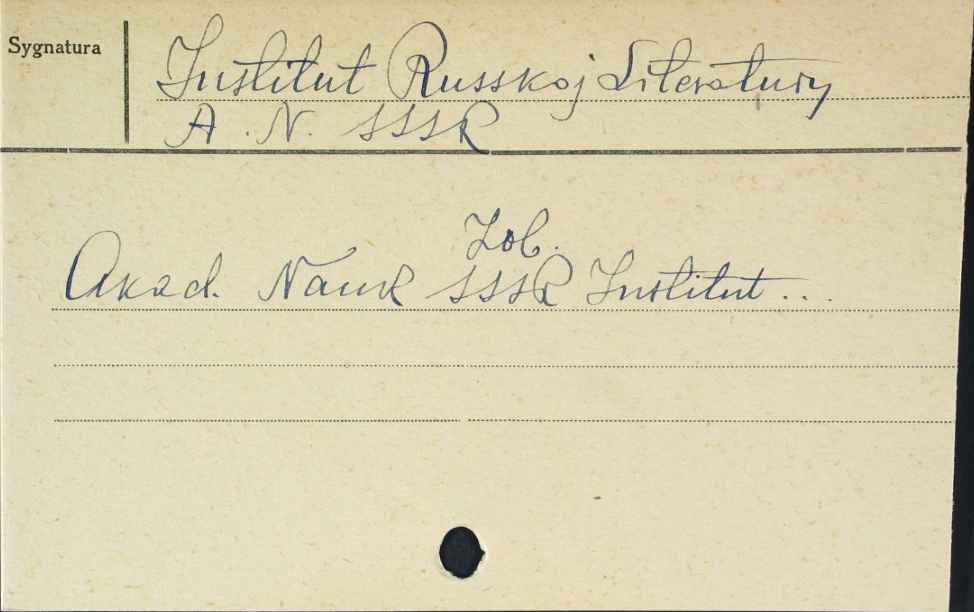 Sygnatura
Institut Russkoj Literatury
A. N. SSSR
Zob.
Akad. Nauk SSSR Institut...